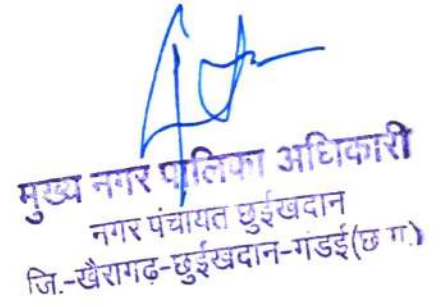 मुख्य नगर पालिका अधिकारी
नगर पंचायत छुईखदान
जि.-खैरागढ़-छुईखदान-गंडई(छ ग.)